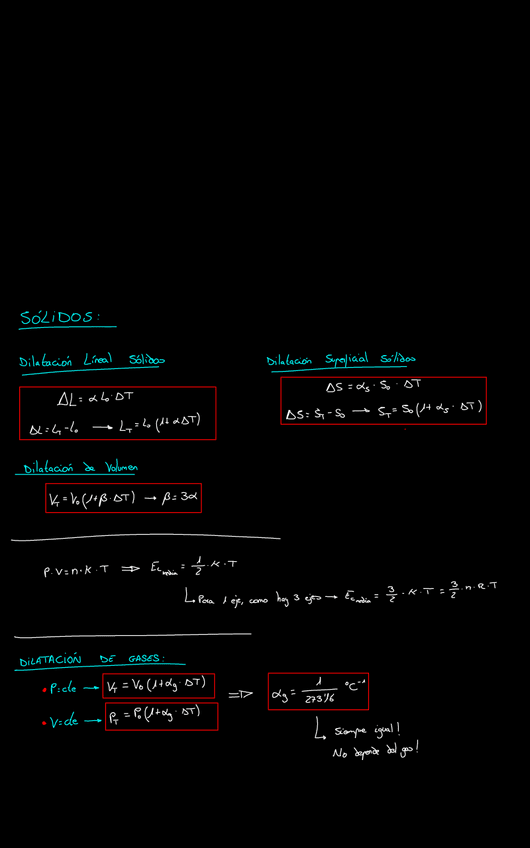 SÓLIDOS:
Dilatación Líneal Sólidos
ΔL = α L₀ · ΔT
ΔL = L_T - L₀ → L_T = L₀ (1 + αΔT)
Dilatación Superficial Sólidos
ΔS = α_s · S₀ · ΔT
ΔS = S_T - S₀ → S_T = S₀ (1 + α_s · ΔT)
Dilatación de Volumen
V_T = V₀ (1 + β · ΔT) → β = 3α
P · V = n · K · T ⇒ E_c media = 1/2 · K · T
↳ Para 1 eje, como hay 3 ejes → E_c media = 3/2 · K · T = 3/2 · n · R · T
DILATACIÓN DE GASES:
• P = cte → V_T = V₀ (1 + α_g · ΔT)
• V = cte → P_T = P₀ (1 + α_g · ΔT)
⇒ α_g = 1/273'16 °C⁻¹
↳ Siempre igual!
No depende del gas!